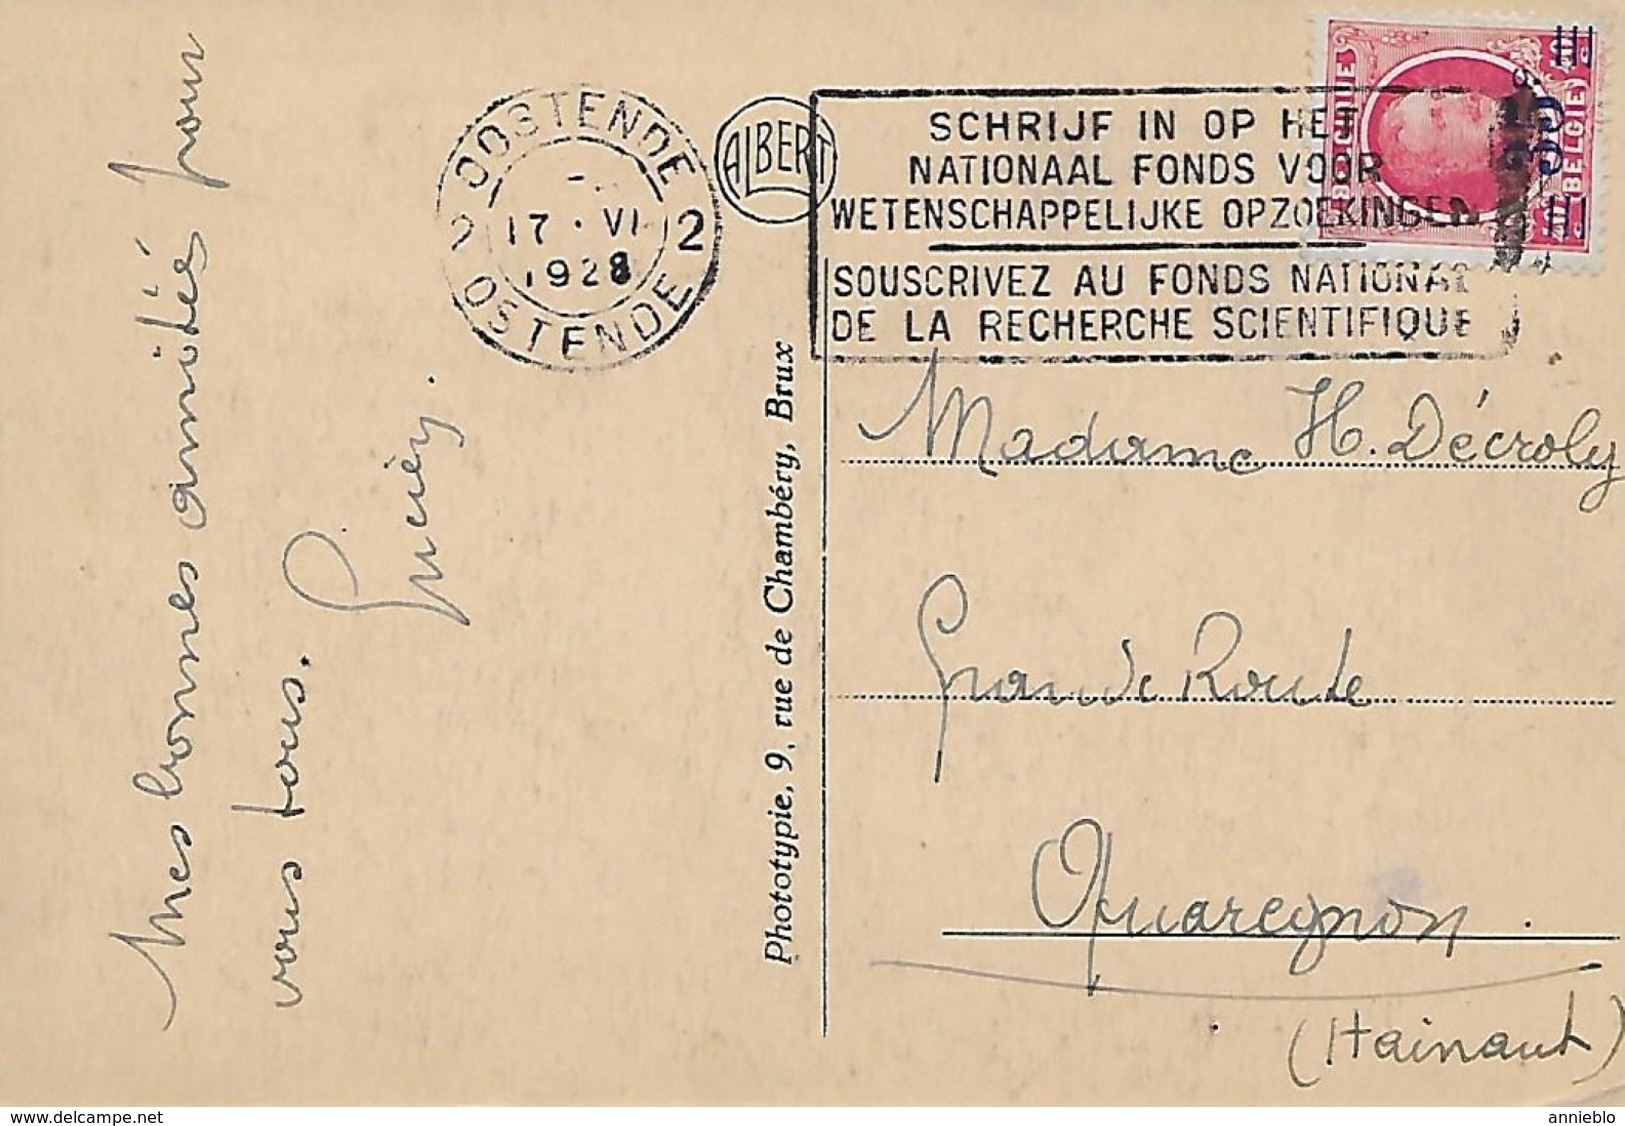 Mes bonnes amitiés pour
vous tous.
OOSTENDE
17 · VI
1928
2 2
OSTENDE
ALBERT
SCHRIJF IN OP HET
NATIONAAL FONDS VOOR
WETENSCHAPPELIJKE OPZOEKINGEN
SOUSCRIVEZ AU FONDS NATIONAL
DE LA RECHERCHE SCIENTIFIQUE
BELGIE
35c
Phototypie, 9, rue de Chambéry, Brux
Madame H. Décroly
Grande Route
Quaregnon.
(Hainaut)
www.delcampe.net
annieblo